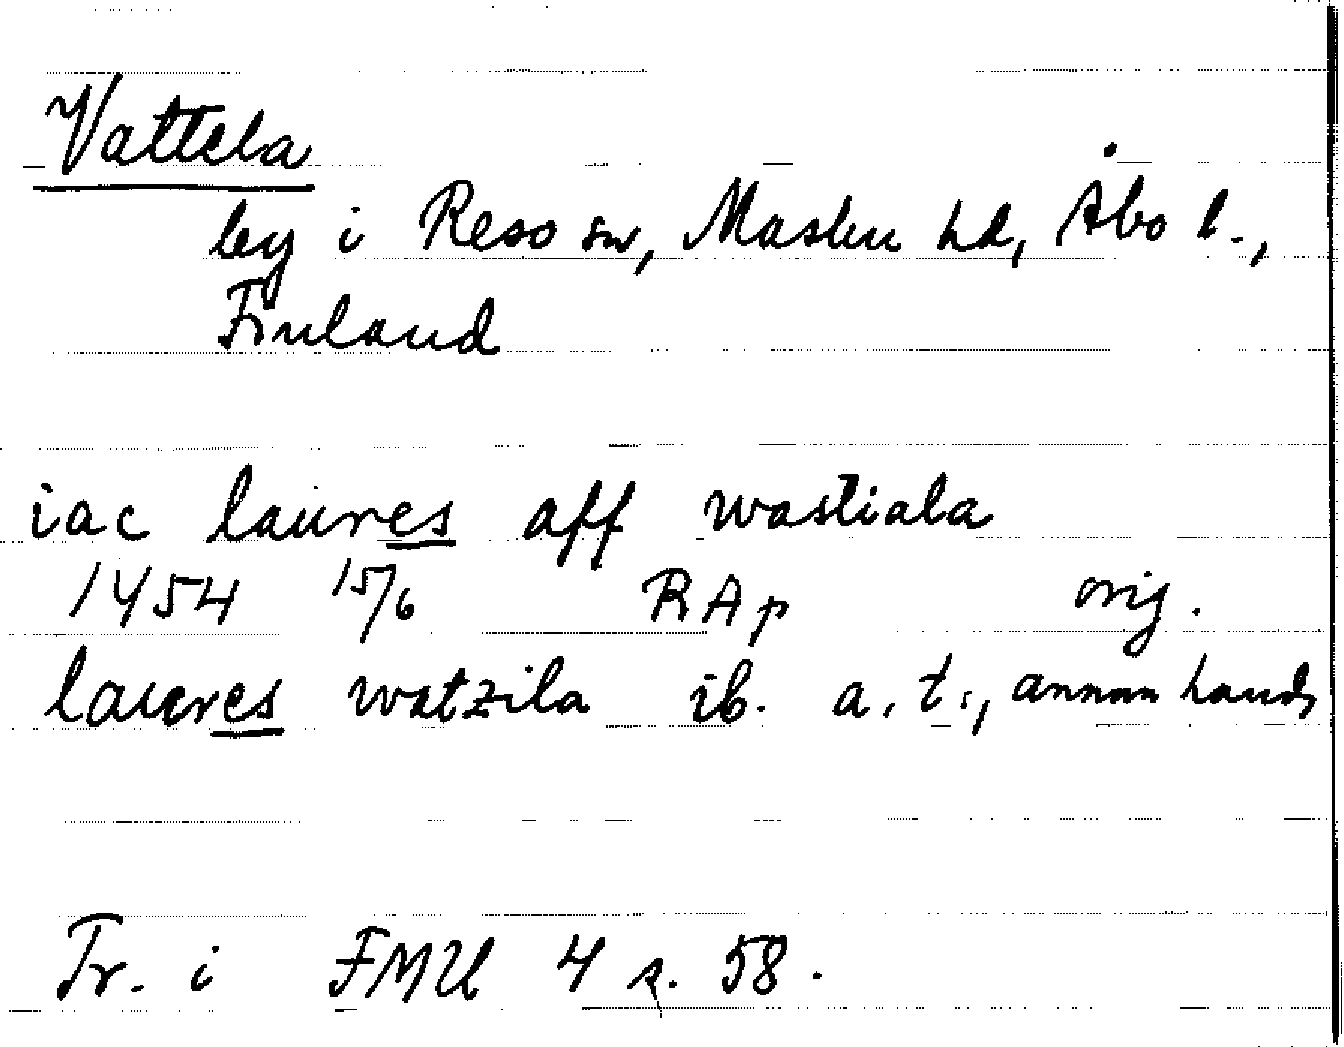 Vattela
by i Reso sn, Masku hd, Åbo l.,
Finland
iac laures aff wastiala
1454 15/6 RAp orig.
laures watzila ib. a. t., annan hand
Tr. i FMU 4 s. 58.